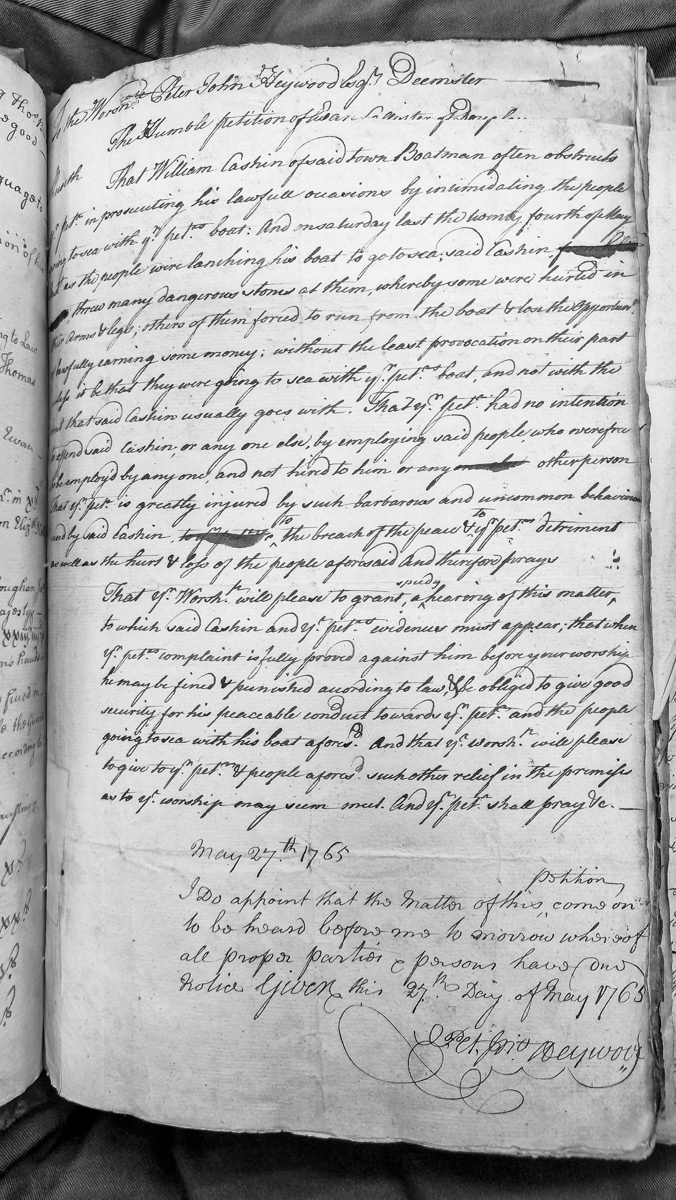 To the Worsh.ll Peter John Heywood Esq.r Deemster
The Humble petition of Ewan
That William Cashin of said town Boatman often obstructs
y.r pet.r in prosecuting his lawfull occasions by intimidating the people
going to sea with y.r pet.rs boat: And on saturday last the twenty fourth of May
as the people were lanching his boat to go to sea; said Cashin
threw many dangerous stones at them, whereby some were hurted in
their arms & legs; others of them forced to run from the boat & lose the opportun.
lawfully earning some money; without the least provocation on their part
unless it be that they were going to sea with y.r pet.rs boat, and not with the
boat that said Cashin usually goes with. That y.r pet.r had no intention
to offend said Cashin, or any one else, by employing said people, who were free
to be employ'd by any one, and not hired to him or any other person
That y.r pet.r is greatly injured by such barbarous and uncommon behaviour
used by said Cashin, to the breach of the peace & to y.r pet.rs detriment
as well as the hurt & loss of the people aforesaid And therefore prays
That y.r Worsh.p will please to grant, a speedy hearing of this matter,
to which said Cashin and y.r pet.rs evidences must appear; that when
y.r pet.rs complaint is fully proved against him before your worship
he may be fined & punished according to law, & be obliged to give good
security for his peaceable conduct towards y.r pet.r and the people
going to sea with his boat afores.d And that y.r worsh.p will please
to give to y.r pet.r & people afores.d such other relief in the premises
as to y.r worship may seem meet. And y.r pet.r shall pray &c.
May 27.th 1765
I Do appoint that the Matter of this petition come on
to be heard before me to morrow whereof
all proper parties & persons have due
Notice Given this 27.th Day of May 1765
Pet. Jno Heywood